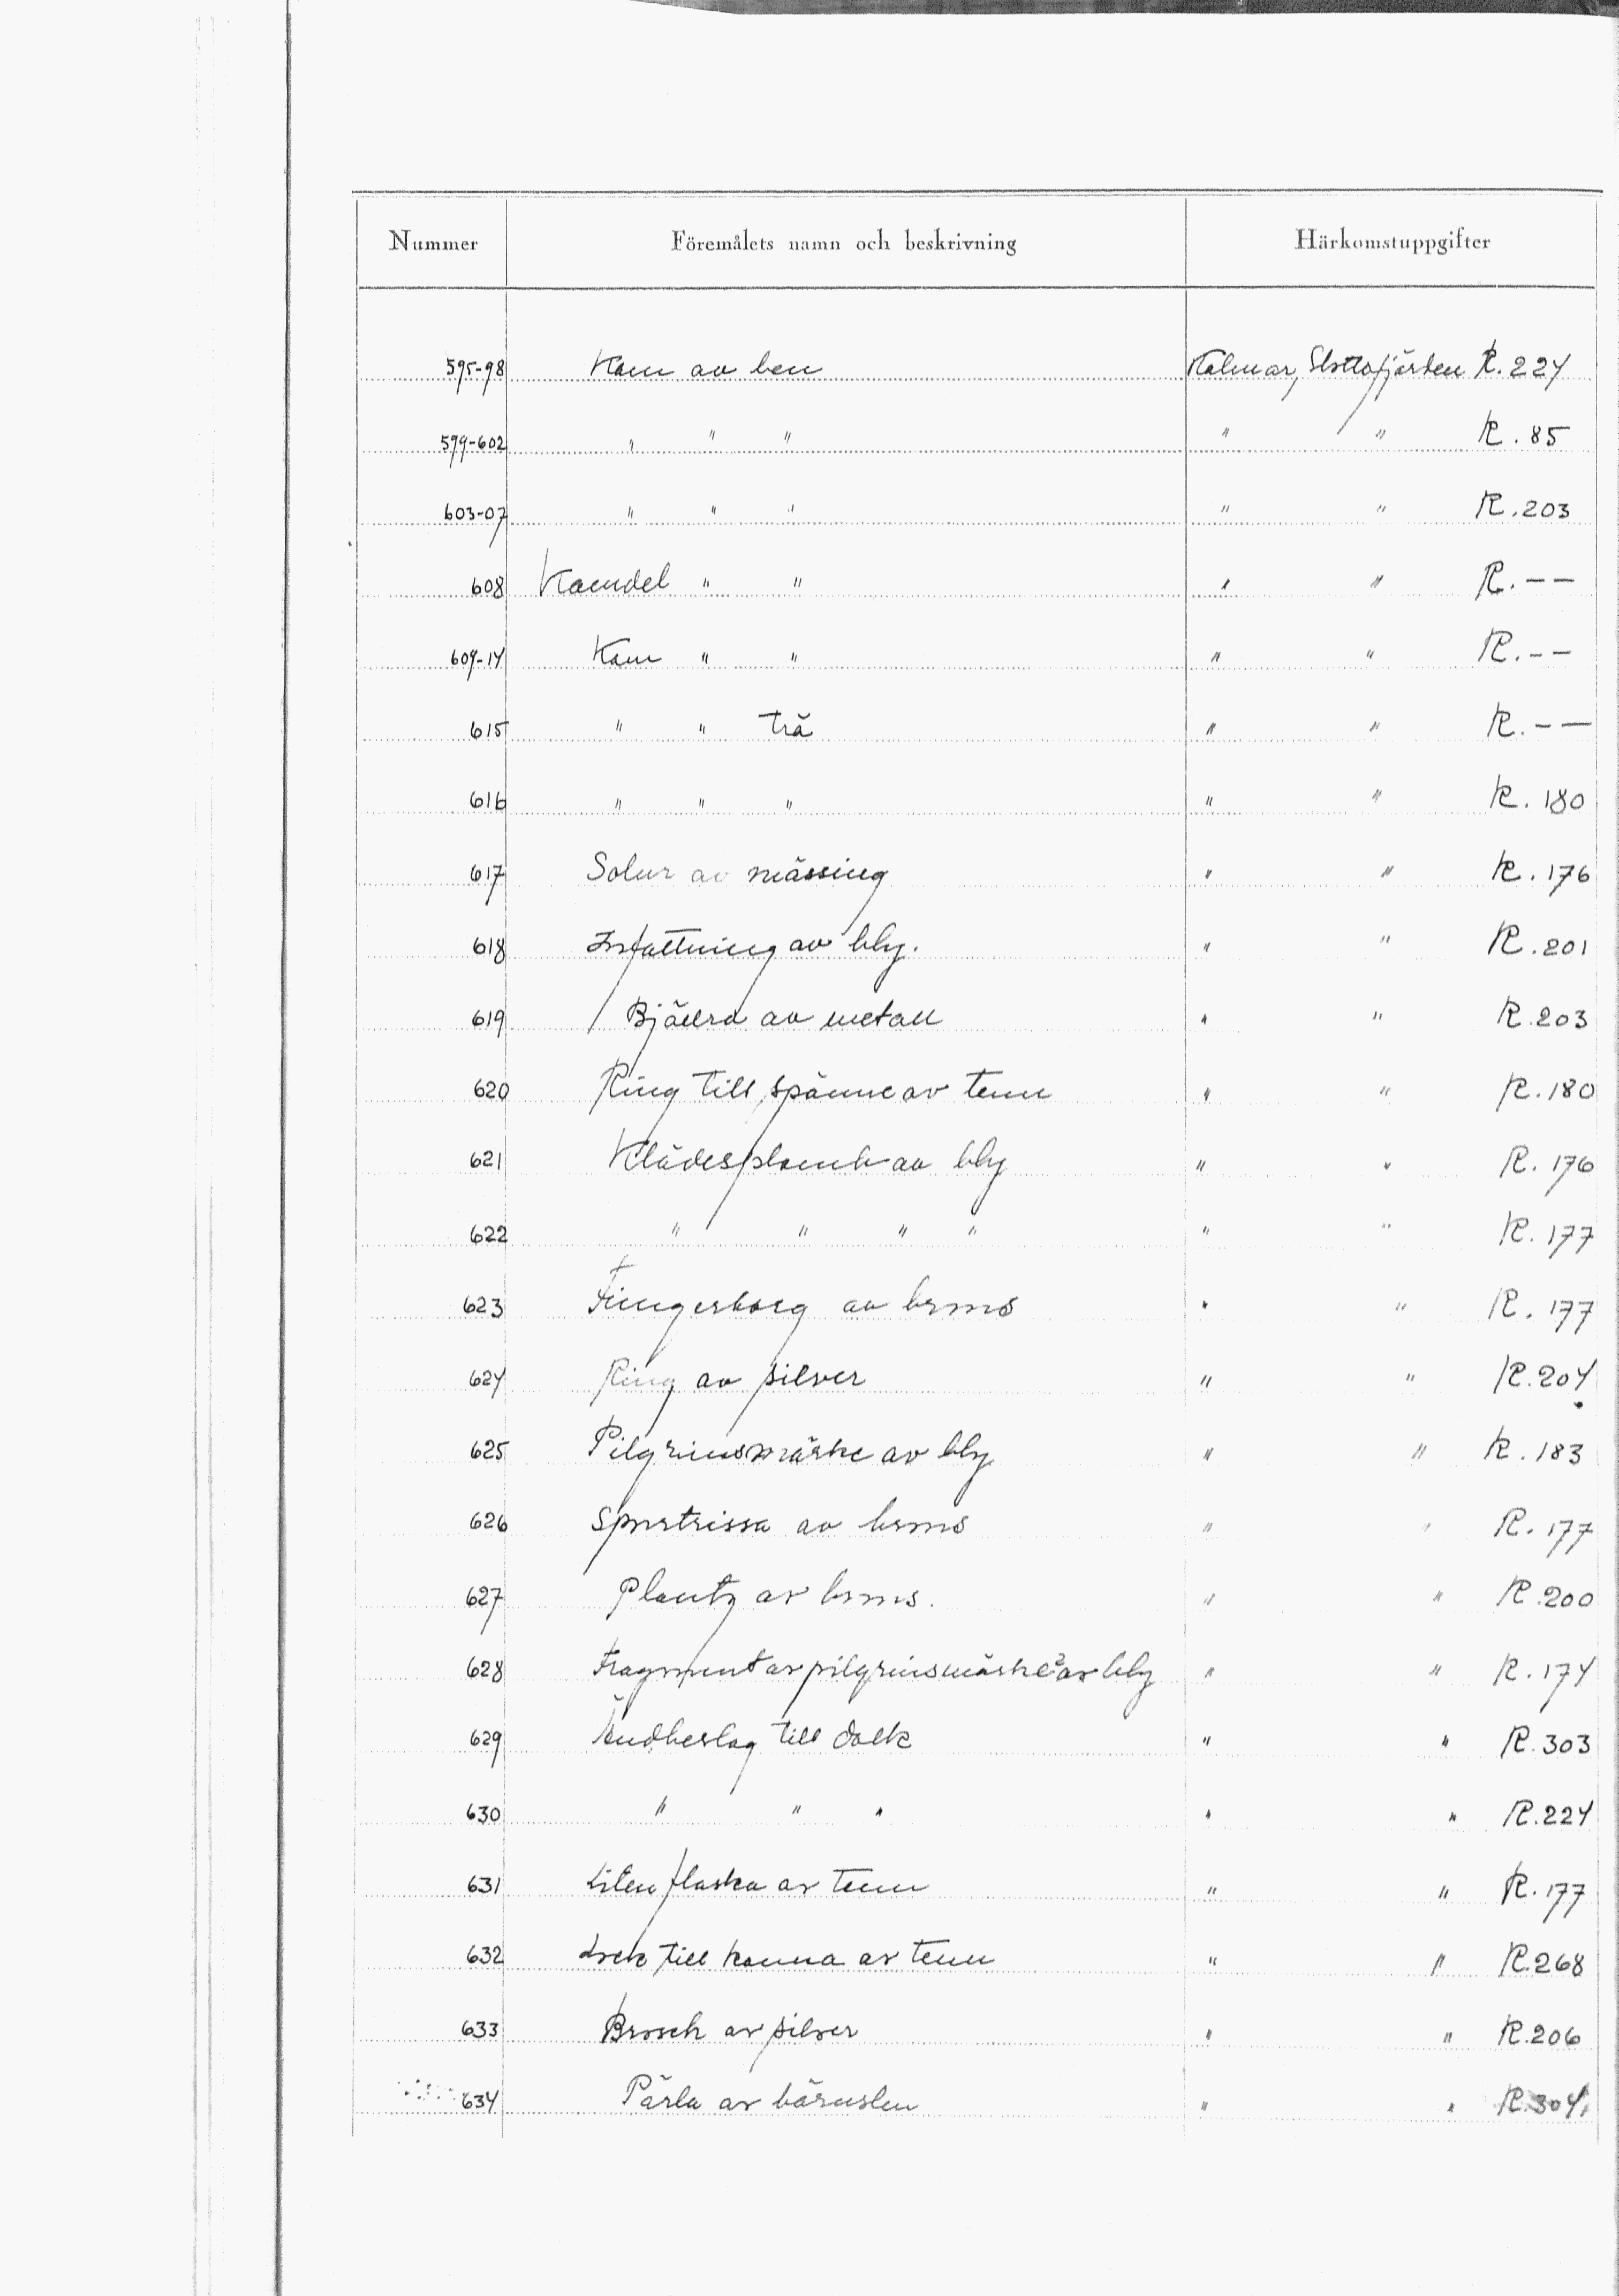 Nummer Föremålets namn och beskrivning Härkomstuppgifter
595-98 Kam av ben Kalmar, Slottsfjärden R. 224
599-602 " " " " " R. 85
603-07 " " " " " R. 203
608 Kamdel " " " " R. --
609-14 Kam " " " " R. --
615 " " trä " " R. --
616 " " " " " R. 180
617 Solur av mässing " " R. 176
618 Infattning av bly. " " R. 201
619 Bjällra av metall " " R. 203
620 Ring till spänne av tenn " " R. 180
621 Klädesplomb av bly " " R. 176
622 " " " " " " R. 177
623 Fingerborg av brons " " R. 177
624 Ring av silver " " R. 204
625 Pilgrimsmärke av bly " " R. 183
626 Sporrtrissa av brons " " R. 177
627 av brons. " " R. 200
628 Fragment av pilgrimsmärke? av bly " " R. 174
629 Ändbeslag till dolk " " R. 303
630 " " " " " R. 224
631 Liten flaska av tenn " " R. 177
632 Lock till kanna av tenn " " R. 268
633 Brosch av silver " " R. 206
634 Pärla av bärnsten " " R. 304